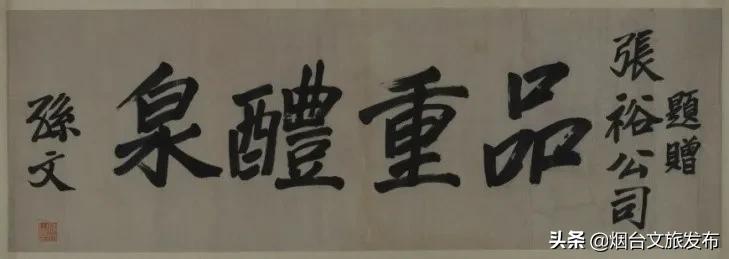 題贈
張裕公司
品重醴泉
孫文
头条 @烟台文旅发布